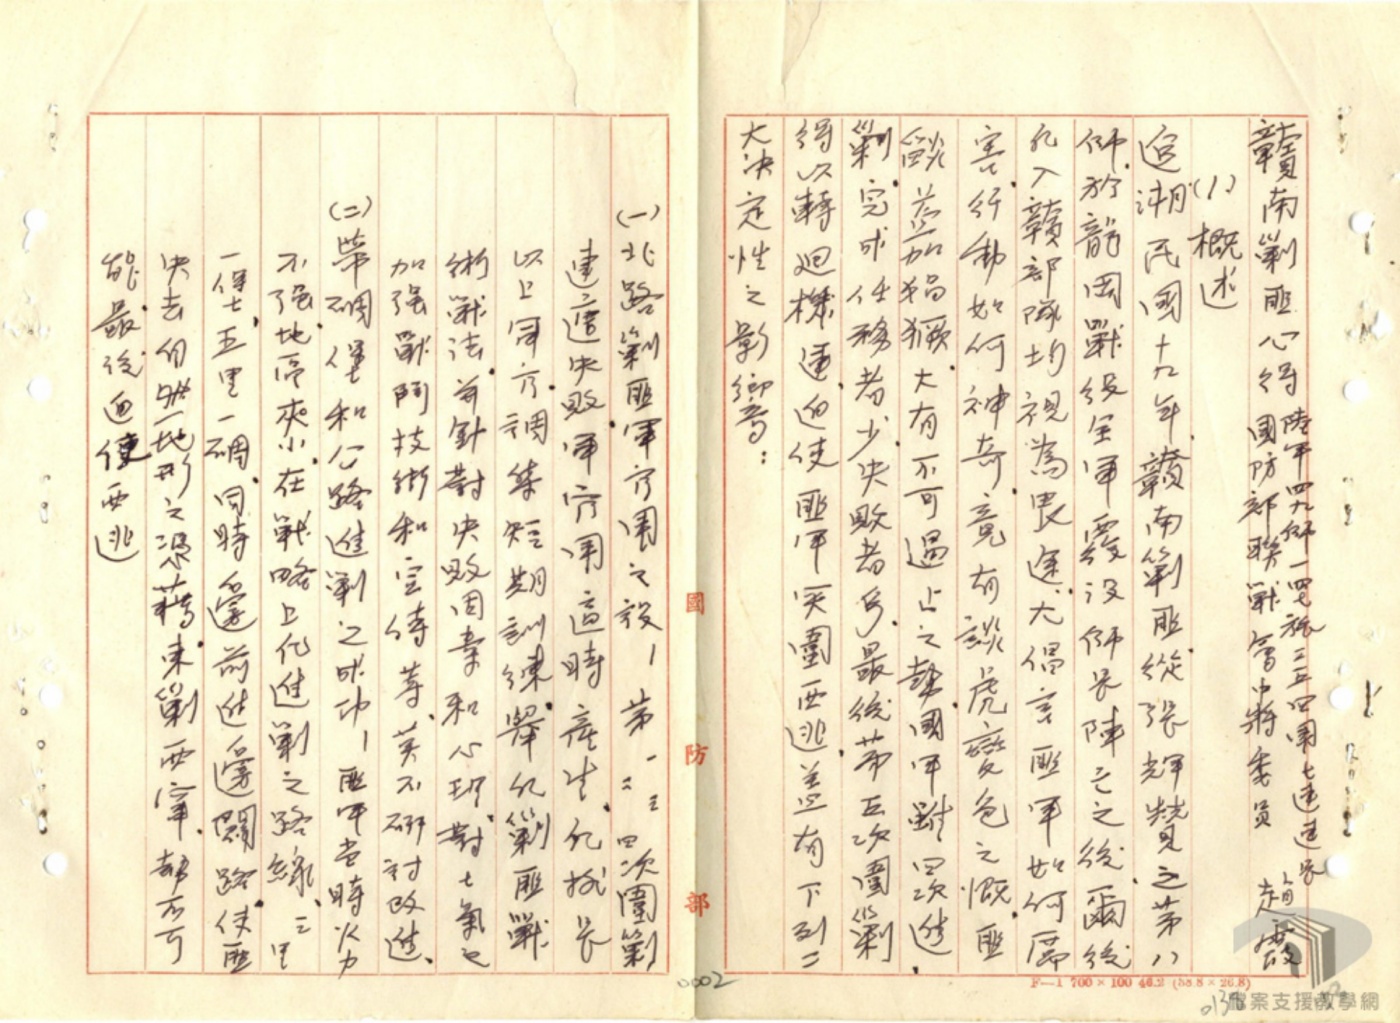 贛南剿匪心得
陸軍四九師一四七旅二三四團七連連長
國防部聯戰會中將委員 趙霞
(1)概述
追溯民國十九年贛南剿匪從張輝瓚之第八
師於龍岡戰役全軍覆沒師長陣亡之後爾後
凡入贛部隊均視為畏途大倡言匪軍如何厲
害行動如何神奇竟有談虎變色之慨匪
燄益加猖獗大有不可遏止之勢國軍雖四次進
剿完成任務者少決敗者多最後第五次圍剿
得以轉迴機運迫使匪軍突圍西逃蓋有下列二
大決定性之影響:
(一)北路剿匪軍官團之設-第一二三四次圍剿
連遭決敗軍官團適時產生凡排長
以上軍官調集短期訓練舉凡剿匪戰
術戰法並針對決敗因素和心理對士氣之
加強戰鬥技術和宣傳等莫不研討改進
(二)築碉堡和公路進剿之成功-匪軍當時火力
不強地區狹小在戰略上化進剿之路線三里
一堡五里一碉同時邊前進邊闢路使匪
決去自然地形之憑藉東剿西竄都不可
能最後迫使西逃
國防部
0002
F—1 700×100 46.2 (38.8×26.8)
檔案支援教學網